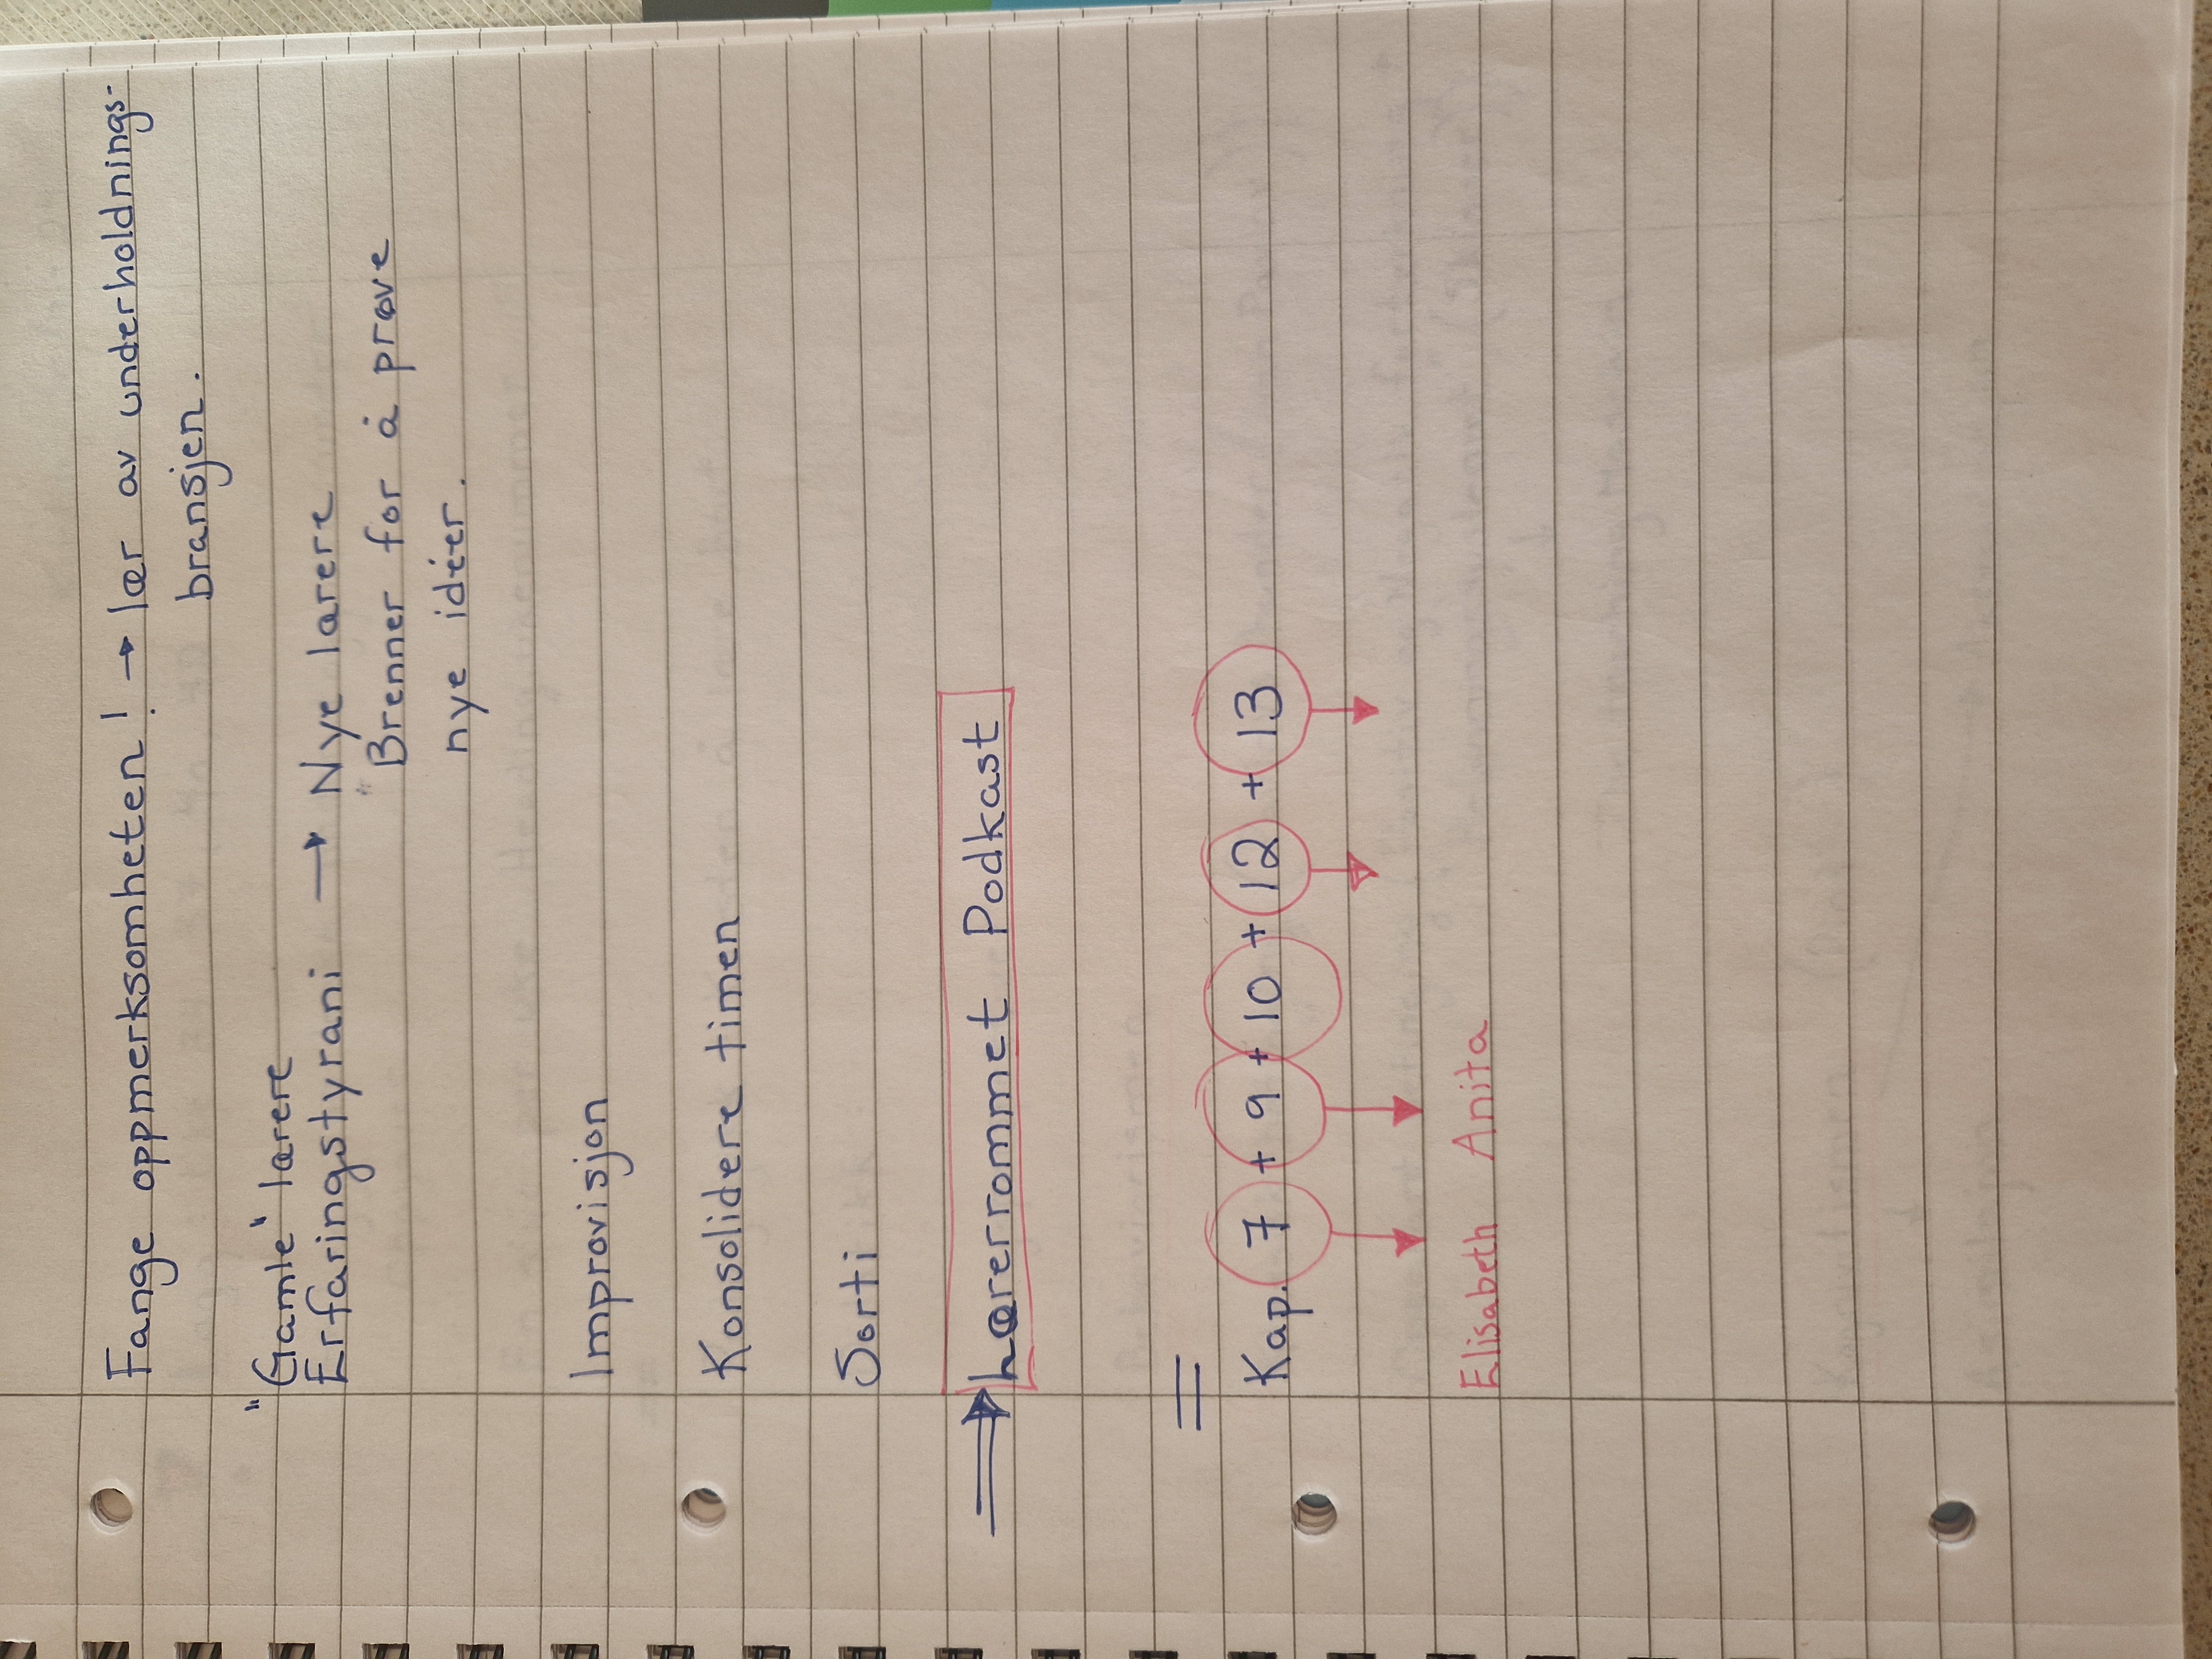 Fange oppmerksomheten! → lær av underholdnings-
bransjen.
"Gamle" lærere
Erfaringstyrani → Nye lærere
"Brenner for å prøve
nye idéer.
Improvisjon
Konsolidere timen
Sorti
⇒ Lærerrommet Podkast
=
Kap. 7 + 9 + 10 + 12 + 13
Elisabeth Anita